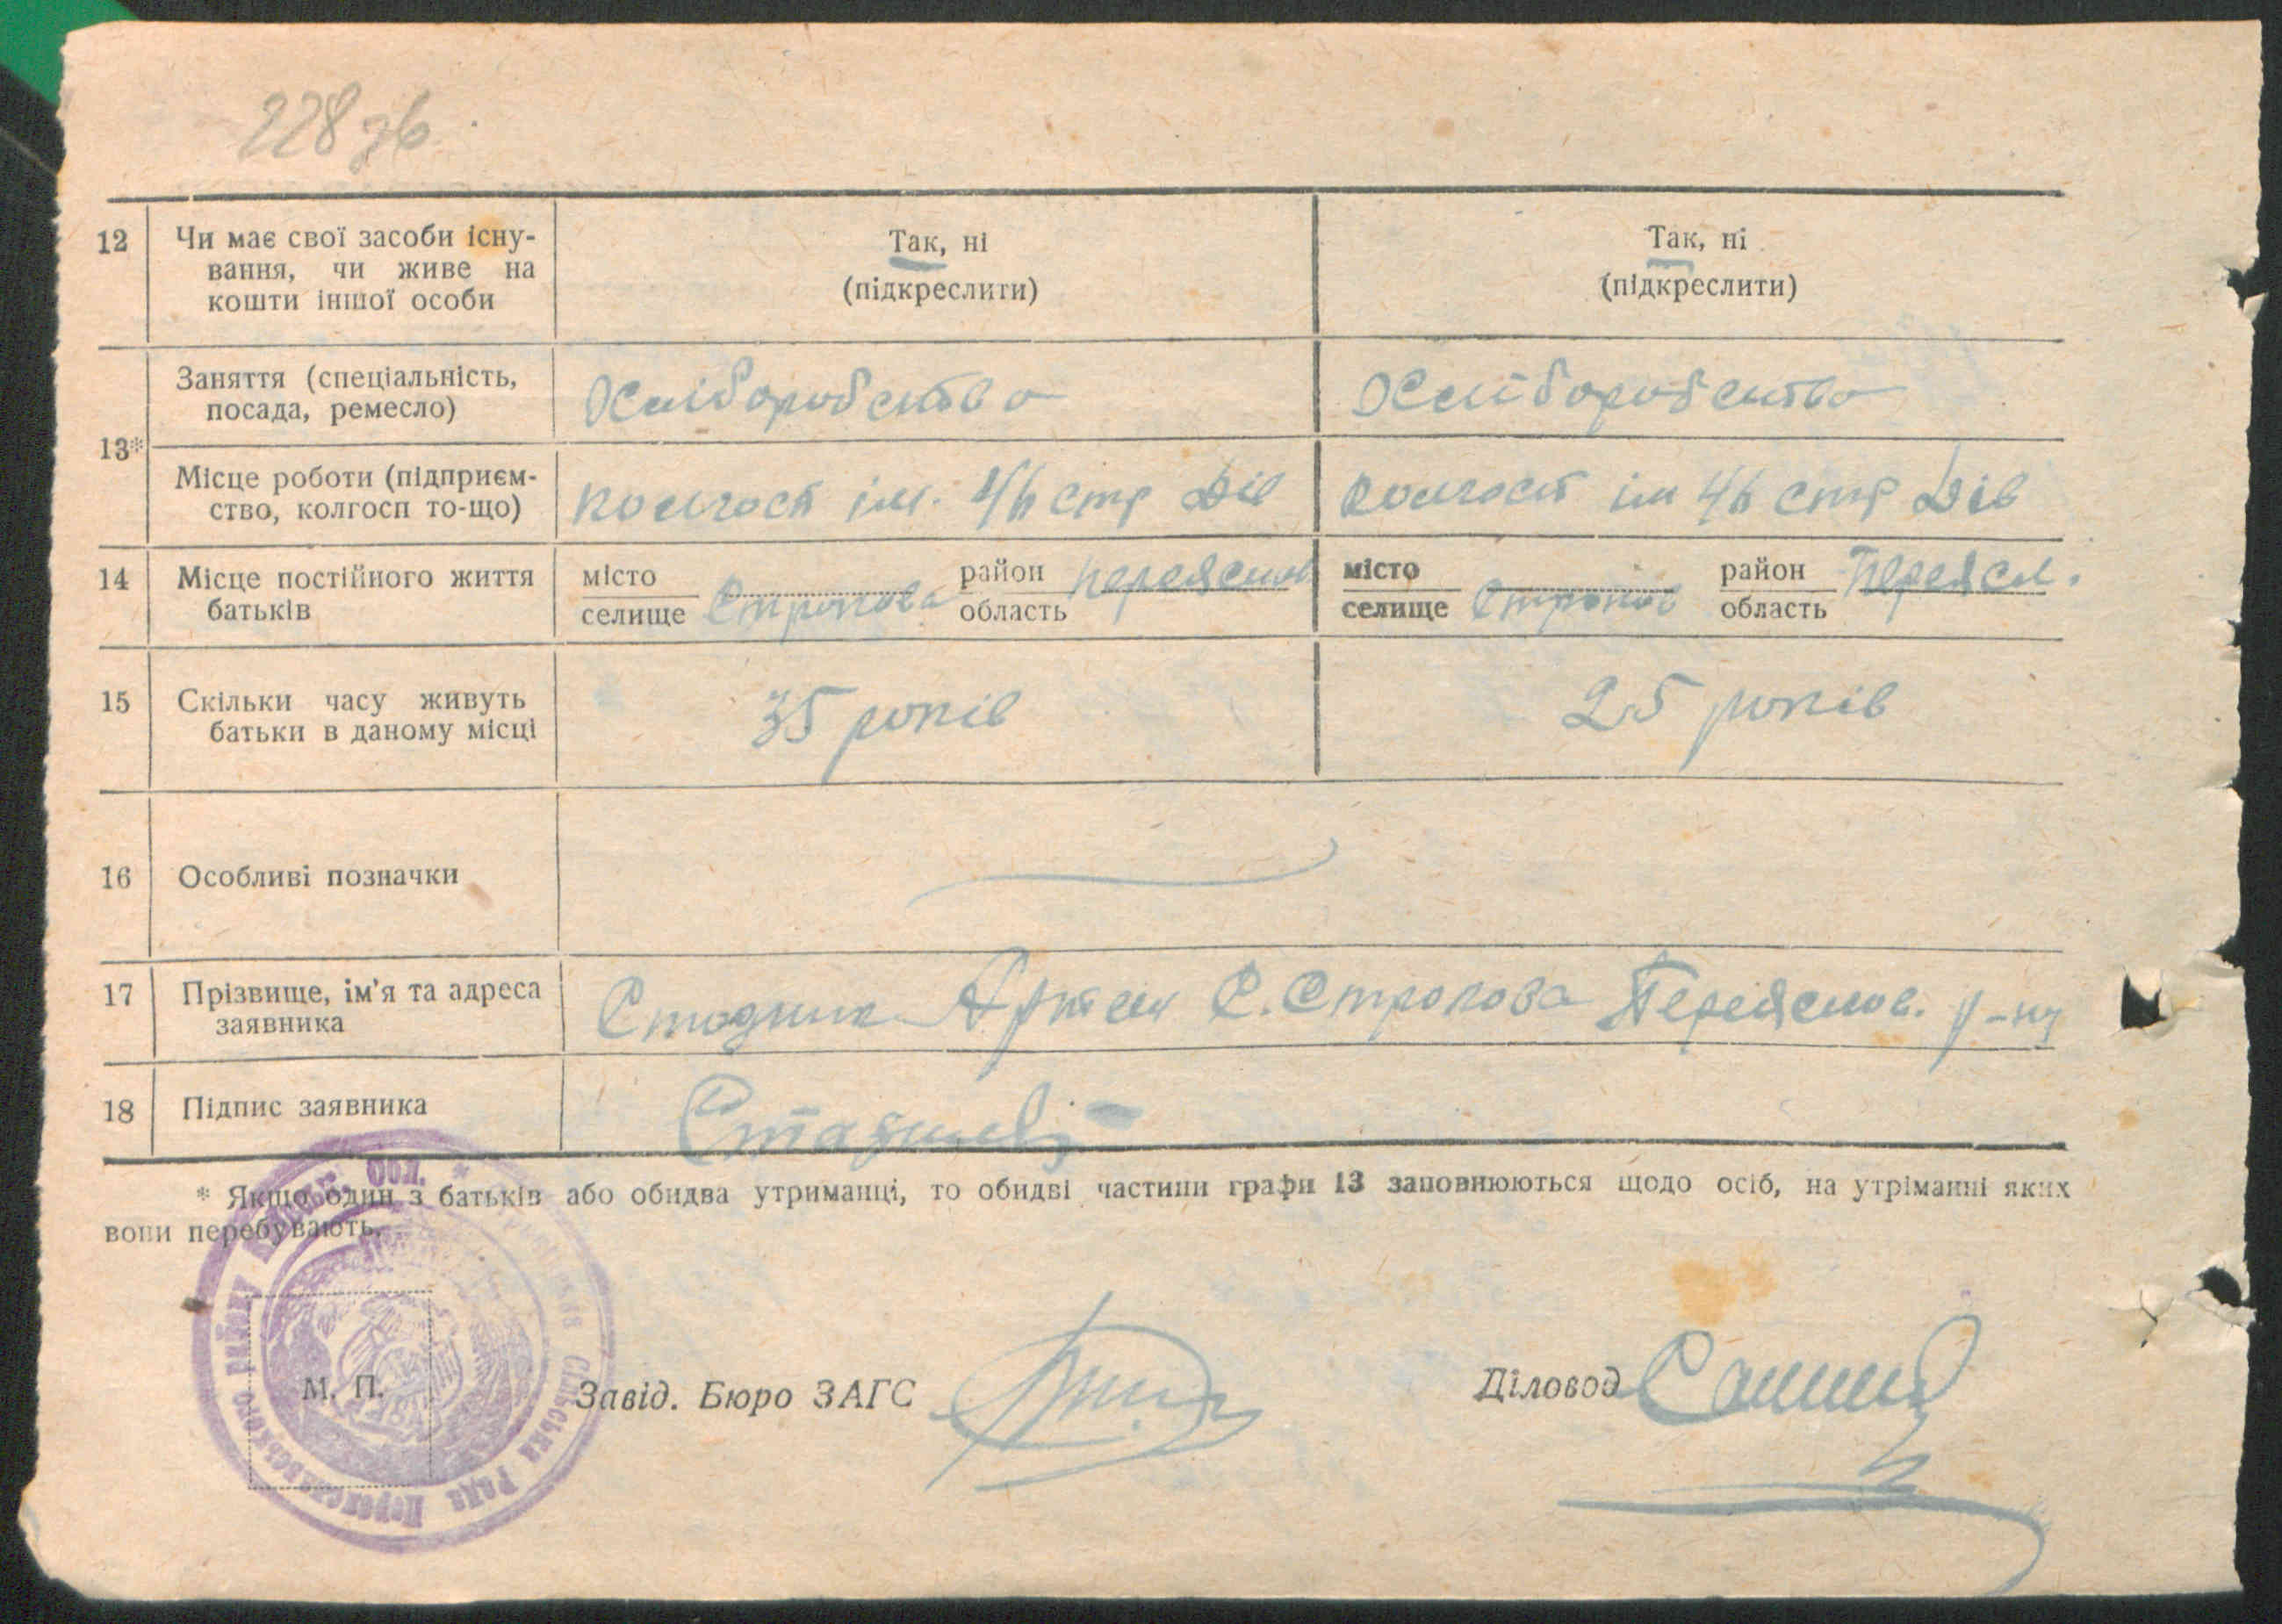 228 зв.
12 Чи має свої засоби існу-
вання, чи живе на
кошти іншої особи
Так, ні
(підкреслити)
Так, ні
(підкреслити)
13*
Заняття (спеціальність,
посада, ремесло)
Хліборобство
Хліборобство
Місце роботи (підприєм-
ство, колгосп то-що)
колгосп ім. 46 стр Див
колгосп ім 46 стр Див
14 Місце постійного життя
батьків
місто
селище Строкова
район Переяслов
область
місто
селище Строков
район Переясл.
область
15 Скільки часу живуть
батьки в даному місці
35 років
25 років
16 Особливі позначки
17 Прізвище, ім'я та адреса
заявника
Стадник Артем С. Строкова Переяслов. р-ну
18 Підпис заявника
* Якщо один з батьків або обидва утриманці, то обидві частини графи 13 заповнюються щодо осіб, на утріманні яких
вони перебувають.
М. П.
Завід. Бюро ЗАГС
Діловод
Сільська Рада Переяславського району Обл.